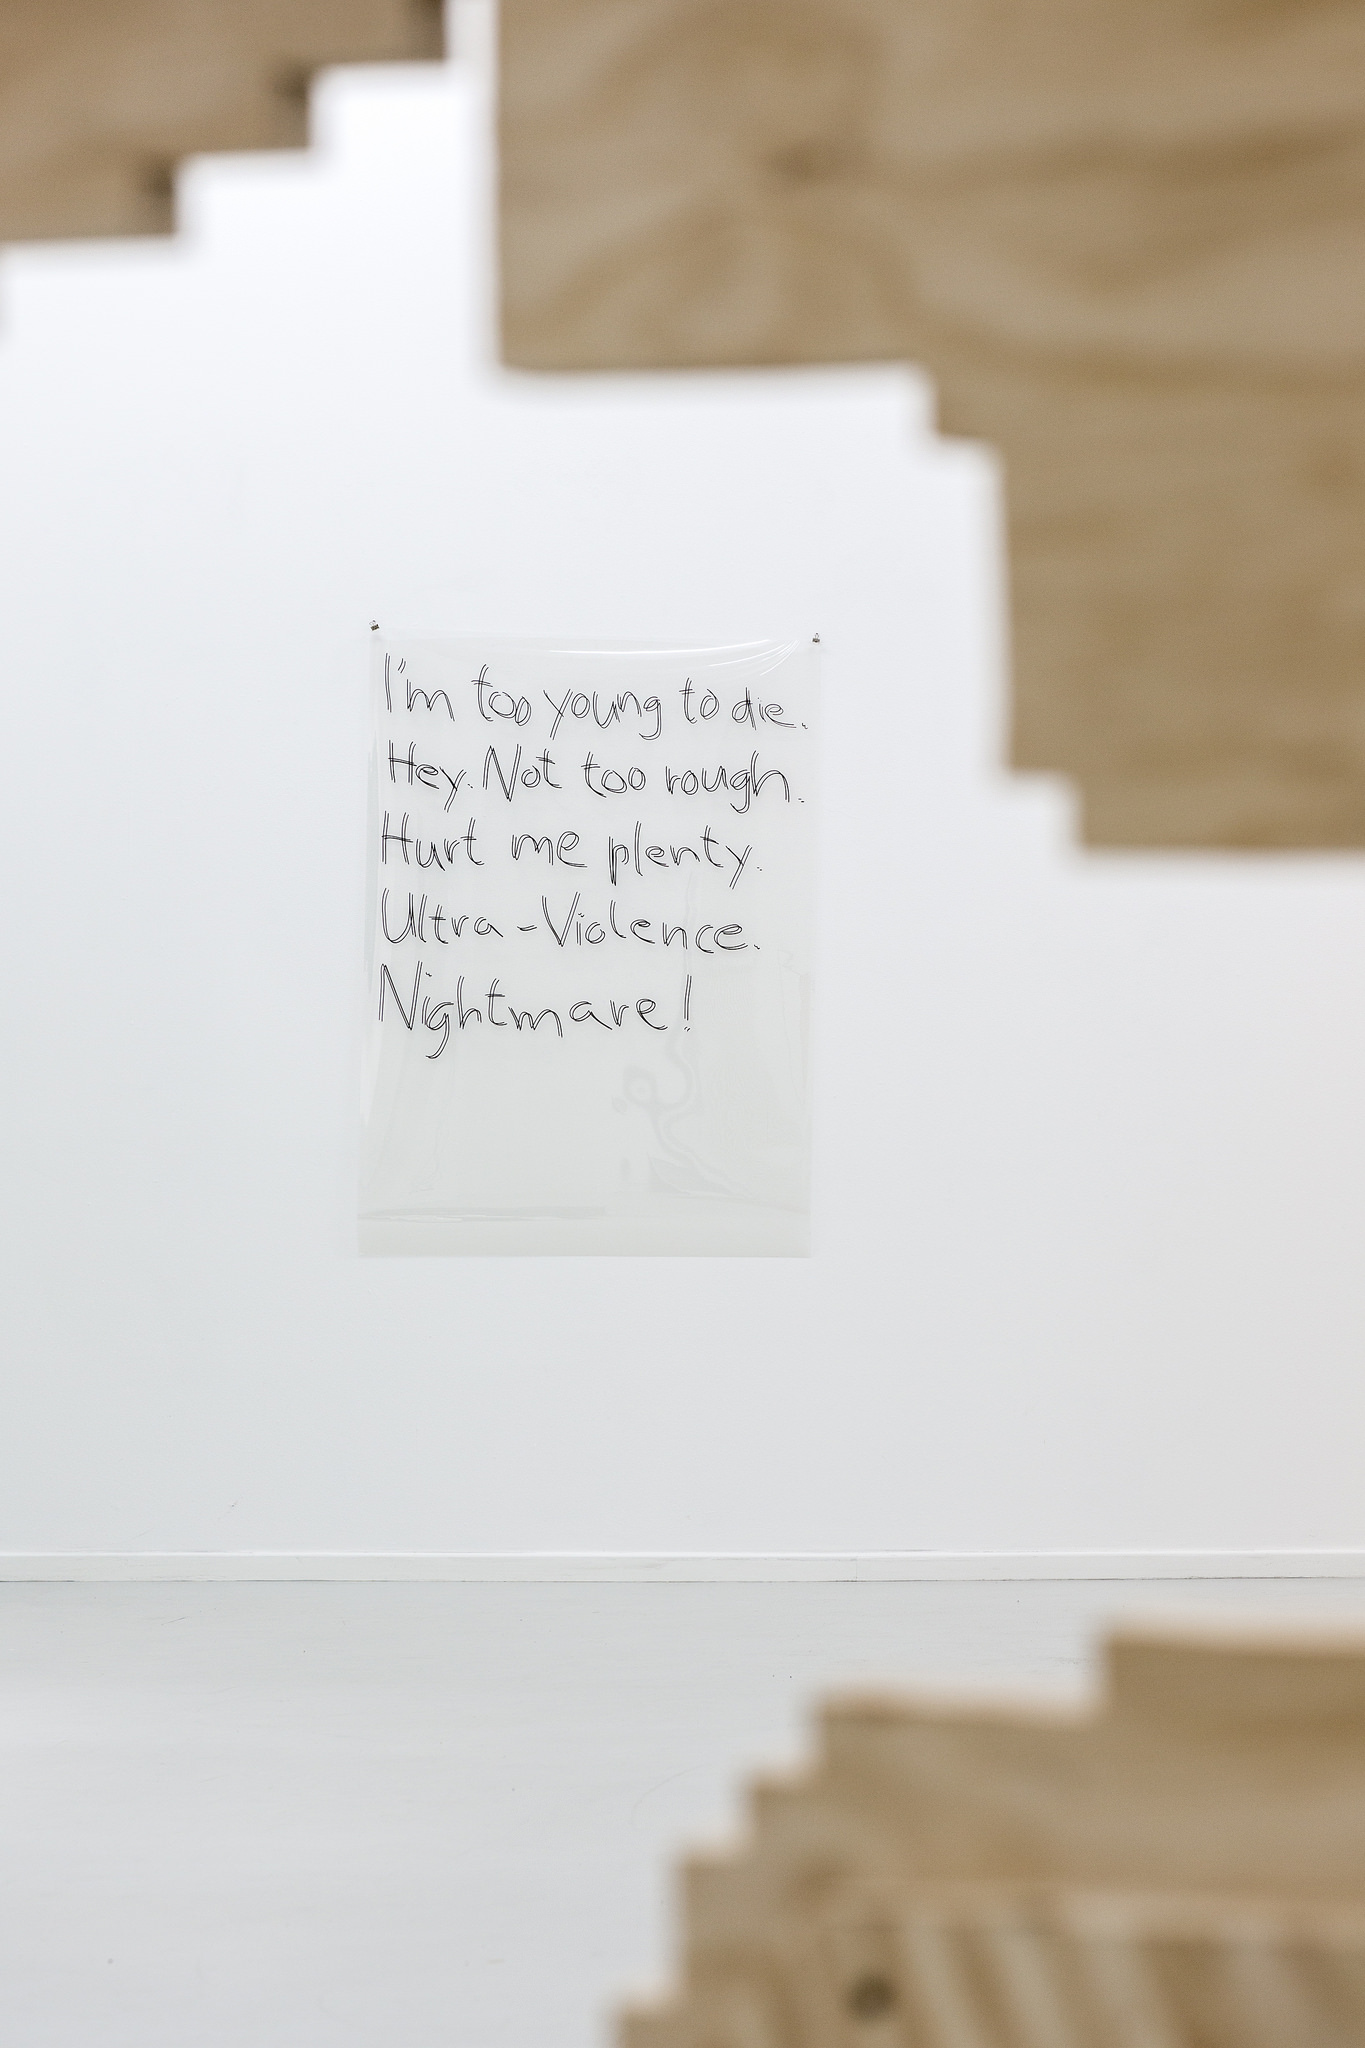 I'm too young to die.
Hey. Not too rough.
Hurt me plenty.
Ultra-Violence.
Nightmare!